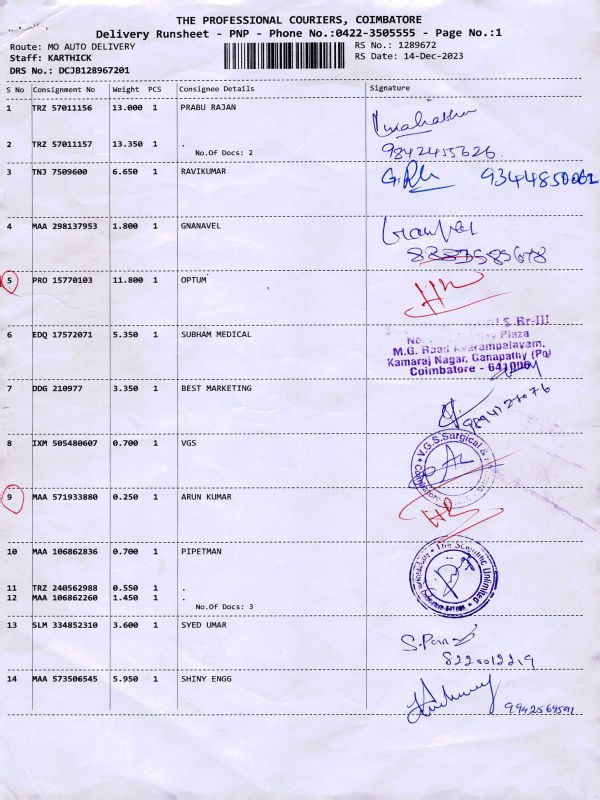 THE PROFESSIONAL COURIERS, COIMBATORE
Delivery Runsheet - PNP - Phone No.:0422-3505555 - Page No.:1
Route: MO AUTO DELIVERY RS No.: 1289672
Staff: KARTHICK RS Date: 14-Dec-2023
DRS No.: DCJB128967201
S No Consignment No Weight PCS Consignee Details Signature
1 TRZ 57011156 13.000 1 PRABU RAJAN
2 TRZ 57011157 13.350 1 .
No.Of Docs: 2 9842455626
3 TNJ 7509600 6.650 1 RAVIKUMAR
4 MAA 298137953 1.800 1 GNANAVEL
5 PRO 15770103 11.800 1 OPTUM
6 EDQ 17572071 5.350 1 SUBHAM MEDICAL
Br-III
Plaza
M.G. Road Avarampalayam,
Kamaraj Nagar, Ganapathy (Po)
Coimbatore - 641006
7 DDG 210977 3.350 1 BEST MARKETING
8 IXM 505480607 0.700 1 VGS
V.G.S. Surgical &
9 MAA 571933880 0.250 1 ARUN KUMAR
10 MAA 106862836 0.700 1 PIPETMAN
The Scientific Unlimited
11 TRZ 240562988 0.550 1 .
12 MAA 106862260 1.450 1 .
No.Of Docs: 3
13 SLM 334852310 3.600 1 SYED UMAR
8220012219
14 MAA 573506545 5.950 1 SHINY ENGG
9942569591